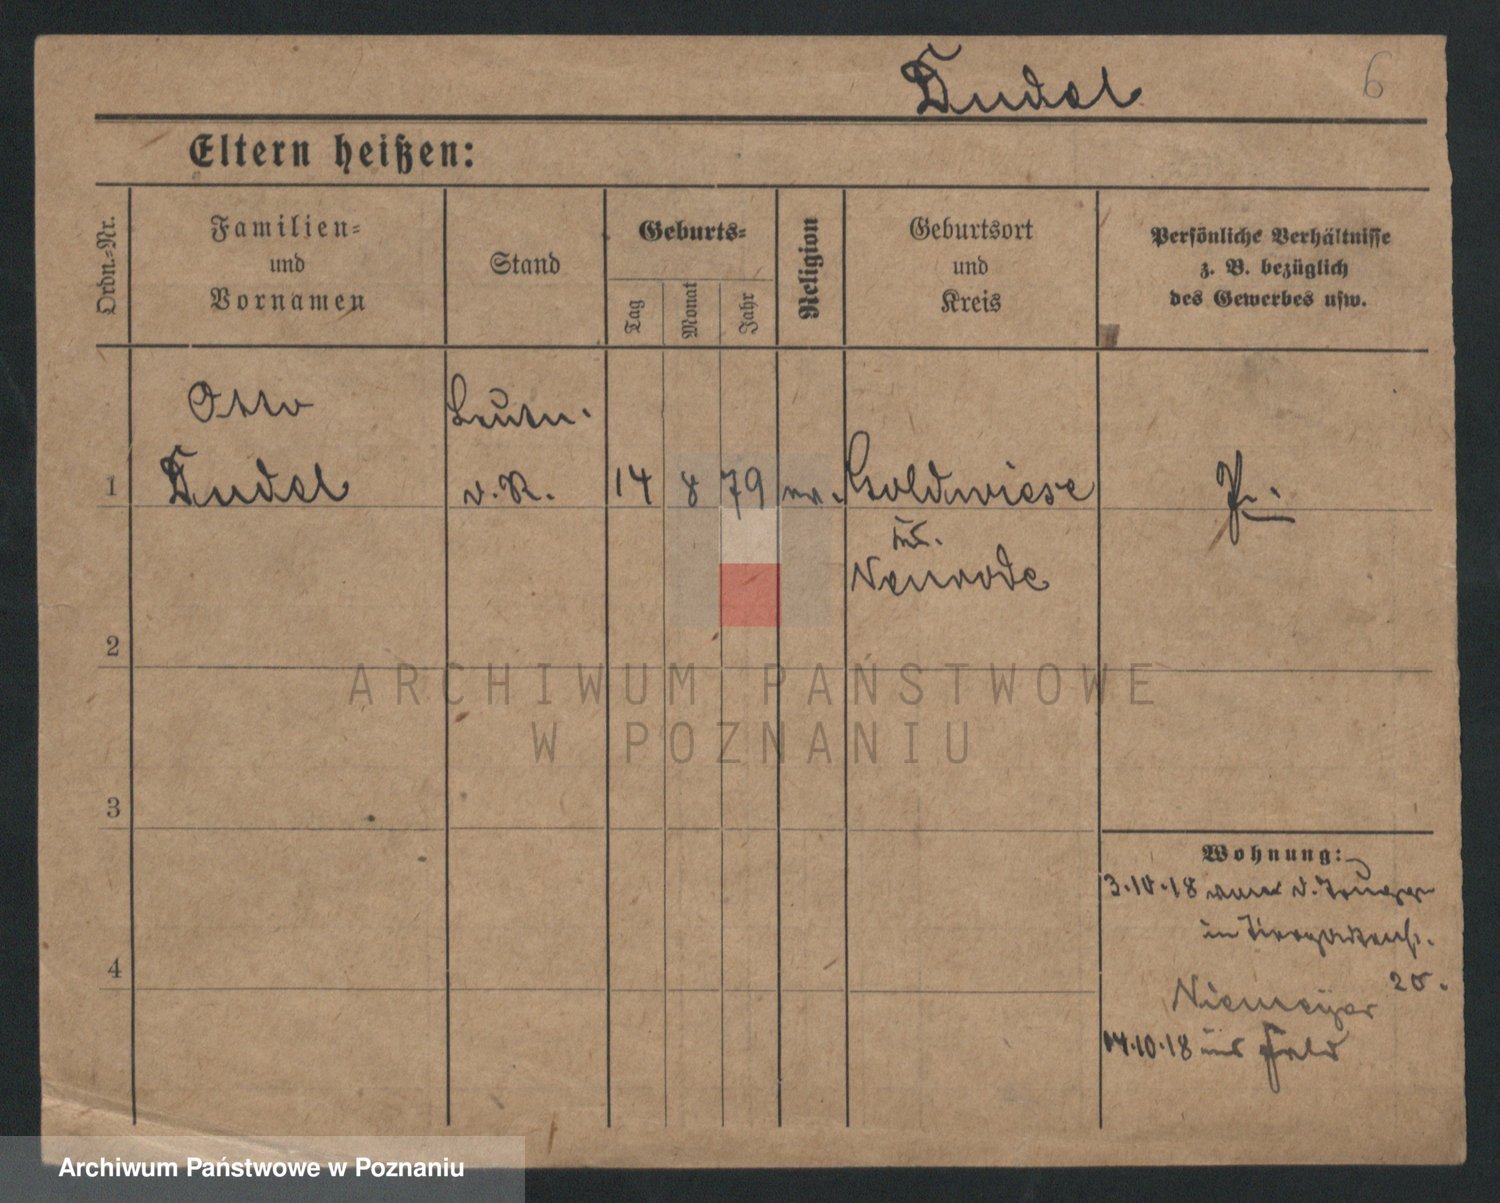 Dudel
6
Eltern heißen:
Ordn.-Nr.
Familien-
und
Vornamen
Stand
Geburts-
Tag
Monat
Jahr
Religion
Geburtsort
und
Kreis
Persönliche Verhältnisse
z. B. bezüglich
des Gewerbes usw.
Otto
Leutn.
1
Dudel
d. R.
14
8
79
ev.
Goldwiese
Neurode
Pr.
2
ARCHIWUM PAŃSTWOWE
W POZNANIU
3
Wohnung:
3.10.18
in Tiergartenstr.
4
Niemeyer
14.10.18 ins Feld
Archiwum Państwowe w Poznaniu